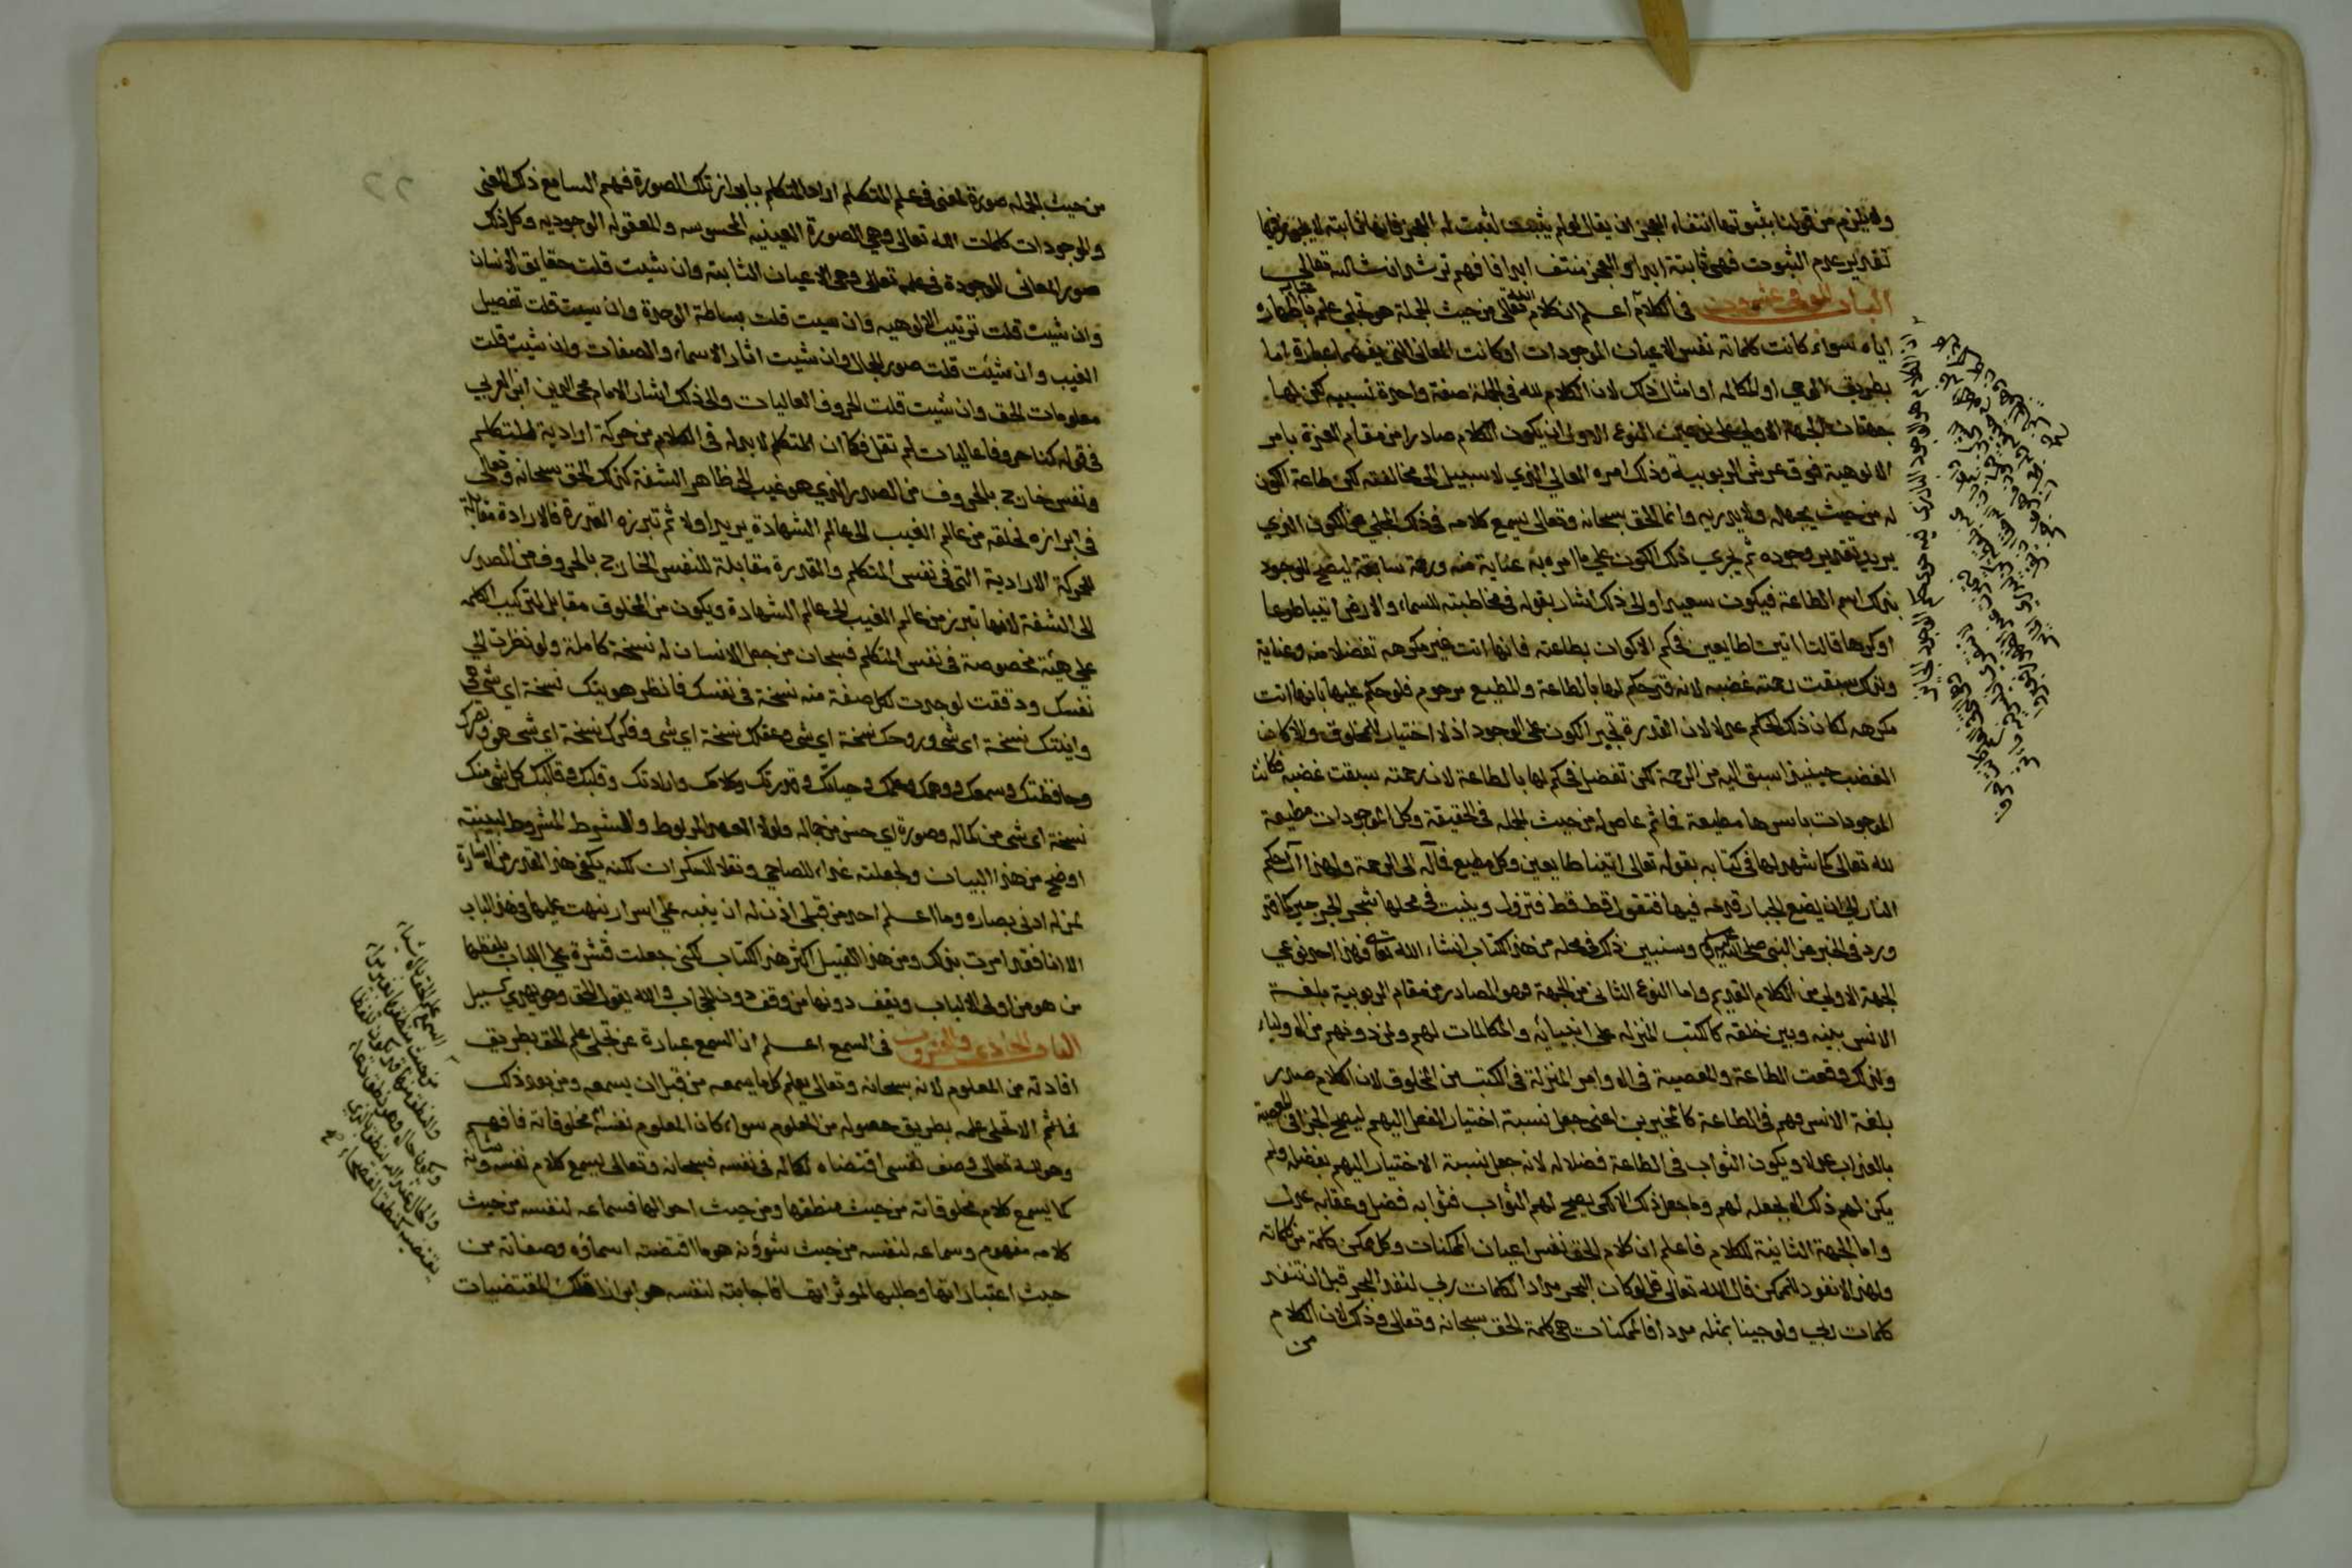 ولا يلزم من قولنا بثبوتها انتفاء العجز ان يقال لو لم يثبت لثبت له العجز فانها ثابتة لا يجوز فيها
تقدير عدم الثبوت فهي ثابتة ابدا والعجز منتف ابدا فافهم ترشد ان شا الله تعالى
الباب الموفي عشرون في الكلام اعلم ان كلام الله تعالى من حيث الجملة هو تجلي علمه باظهاره
اياه سواء كانت كلماته نفس الاعيان الموجودات او كانت المعاني التي يفهمها عباده اما
بطريق الوحي او المكالمه او امثال ذلك لان الكلام لله في الجملة صفة واحدة نسبيه لكن لها
جهتان الجهة الاولى على نوعين النوع الاول ان يكون الكلام صادرا من مقام العزة بامر
الالوهية فوق عرش الربوبية وذلك امره العالي الذي لا سبيل الى مخالفته لكن طاعة الكون
له من حيث يجهله ولا يدريه وانما الحق سبحانه وتعالى يسمع كلامه في ذلك المجلي عن الكون الذي
يريد تقدير وجوده ثم يجري ذلك الكون على ما امره به عناية منه ورحمة سابقة ليصح للوجود
بذلك اسم الطاعة فيكون سعيدا والى ذلك اشار بقوله في مخاطبته للسماء والارض ائتيا طوعا
او كرها قالتا اتينا طايعين فحكم الاكوان بطاعته فانها اتت غير مكرهه تفضلا منه وعناية
ولذلك سبقت رحمته غضبه لانه قد حكم لها بالطاعة والمطيع مرحوم فلو حكم عليها بانها اتت
مكرهه لكان ذلك الحكم عدلا لان القدرة تجبر الكون على الوجود اذ لا اختيار للمخلوق ولا كان
الغضب حينيذ اسبق اليه من الرحمة لكن تفضل فحكم لها بالطاعة لان رحمته سبقت غضبه فكانت
الموجودات باسرها مطيعة فما ثم عاص له من حيث الجمله في الحقيقة وكل الموجودات مطيعة
لله تعالى كما شهد لها في كتابه بقوله تعالى اتينا طايعين وكل مطيع فمآله الى الرحمة ولهذا آل حكم
النار الى ان يضع الجبار قدمه فيها فتقول قط قط فتزول وينبت في محلها شجر الجرجير كما قد
ورد في الخبر من النبي صلى الله عليه وسلم وسنبين ذلك في محله من هذا الكتاب ان شاء الله تعالى فهذا احد نوعي
الجهة الاولى من الكلام القديم واما النوع الثاني من الجهة فهو الصادر من مقام الربوبية بلغة
الانس بينه وبين خلقه كالكتب المنزله على انبيائه والمكالمات لهم ولمن دونهم من الاولياء
ولذلك وقعت الطاعة والمعصية في الاوامر المنزلة في الكتب من المخلوق لان الكلام صدر
بلغة الانس فهم في الطاعة كالمخيرين اعني جعل نسبة اختيار الفعل اليهم ليصح الجزا في المعصية
بالعذاب عدلا ويكون الثواب في الطاعة فضلا له لانه جعل نسبة الاختيار اليهم بفضله ولم
يكن لهم ذلك الا بجعله لهم وما جعل ذلك الا لكي يصح لهم الثواب فثوابه فضل وعقابه عدل
واما الجهة الثانية للكلام فاعلم ان كلام الحق نفس اعيان الممكنات وكل ممكن كلمة من كلماته
ولهذا لا نفود للممكن قال الله تعالى قل لو كان البحر مدادا لكلمات ربي لنفد البحر قبل ان تنفد
كلمات ربي ولو جينا بمثله مددا فالممكنات هي كلمة الحق سبحانه وتعالى وذلك لان الكلام
من
من حيث الجمله صورة لمعنى في علم المتكلم اراد المتكلم بابراز تلك الصورة فهم السامع ذلك المعنى
والموجودات كلمات الله تعالى وهي الصورة العينيه المحسوسه والمعقوله الوجوديه وكل ذلك
صور المعاني الموجودة في علمه تعالى وهي الاعيان الثابتة وان شيت قلت حقايق الانسان
وان شيت قلت ترتيب الالوهيه وان شيت قلت بساطة الوحدة وان شيت قلت تفصيل
الغيب وان شيت قلت صور الجمال وان شيت اثار الاسماء والصفات وان شيت قلت
معلومات الحق وان شيت قلت الحروف العاليات والى ذلك اشار الامام محي الدين ابن العربي
في قوله كنا حروفا عاليات لم نقل فكما ان المتكلم لا بد له في الكلام من حركة ارادية للمتكلم
ونفس خارج بالحروف من الصدر الذي هو غيب الى ظاهر الشفة كذلك الحق سبحانه وتعالى
في ابرازه لخلقه من عالم الغيب الى عالم الشهادة يريد اولا ثم تبرزه القدرة فالارادة مقابلة
للحركة الارادية التي في نفس المتكلم والقدرة مقابلة للنفس الخارج بالحروف من الصدر
الى الشفة لانها تبرز من عالم الغيب الى عالم الشهادة ويكون من المخلوق مقابل لتركيب الكلمه
على هيئة مخصوصة في نفس المتكلم فسبحان من جعل الانسان له نسخة كاملة ولو نظرت الى
نفسك ودققت لوجدت لكل صفة منه نسخة في نفسك فانظر هويتك نسخة اي شي هي
وانيتك نسخة اي شي وروحك نسخة اي شي وعقلك نسخة اي شي وفكرك نسخة اي شي هو
وحافظتك وسمعك ووهمك وعلمك وحياتك وقدرتك وكلامك وارادتك وقلبك وقالبك كل شي منك
نسخة اي شي من كماله وصورة اي حسن من جماله ولولا العهد المربوط والشرط المشروط لبينته
اوضح من هذا البيان ولجعلته غذاء للصاحي ونقلا للسكران لكنه يكفي هذا القدر من الاشارة
لمن له ادنى بصاره وما اعلم احد من قبلي اذن له ان ينبه على اسرار نبهت عليها في هذا الباب
الا انا فقد امرت بذلك ومن هذا القبيل اكثر هذا الكتاب لكني جعلت قشرة على اللباب يلفظها
من هو من اولى الالباب ويقف دونها من وقف دون الحجاب والله يقول الحق وهو يهدي السبيل
الباب الحادي والعشرون في السمع اعلم ان السمع عبارة عن تجلي علم الحق بطريق
افادته من المعلوم لانه سبحانه وتعالى يعلم كل ما يسمعه من قبل ان يسمعه ومن بعد ذلك
فما ثم الا تجلي علمه بطريق حصوله من المعلوم سواء كان المعلوم نفسه او مخلوقاته فافهم
وهو لله تعالى وصف نفسي اقتضاه لكماله في نفسه فسبحانه وتعالى يسمع كلام نفسه وشانه
كما يسمع كلام مخلوقاته من حيث منطقها ومن حيث احوالها فسماعه لنفسه من حيث
كلامه مفهوم وسماعه لنفسه من حيث شوؤنه هو ما اقتضته اسماؤه وصفاته من
حيث اعتباراتها وطلبها لموثراتها فاجابته لنفسه هو ابراز تلك المقتضيات